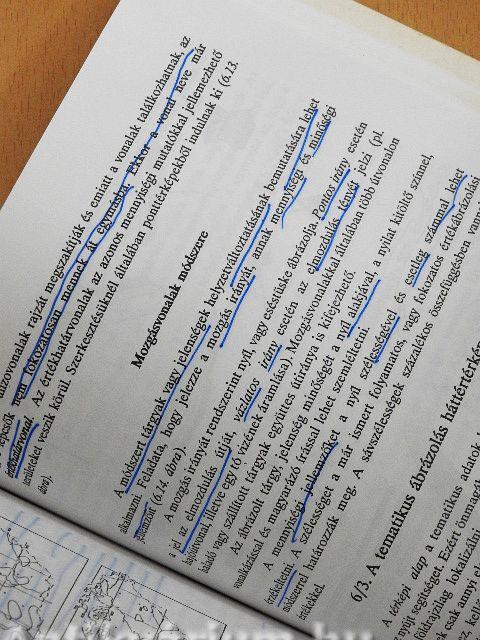 vonalak rajzát megszakítják és emiatt a vonalak találkozhatnak, az
nem fokozatosan mennek át egymásba. Ekkor a vonal neve már
Az értékhatárvonalak az azonos mennyiségi mutatókkal jellemezhető
területeket veszik körül. Szerkesztésüknél általában ponttérképekből indulnak ki (6.13.
ábra).
Mozgásvonalak módszere
A módszert tárgyak vagy jelenségek helyzetváltoztatásának bemutatására lehet
alkalmazni. Feladata, hogy jelezze a mozgás irányát, annak mennyiségi és minőségi
jellemzőit (6.14. ábra).
A mozgás irányát rendszerint nyíl, vagy eséstüske ábrázolja. Pontos irány esetén
a jel az elmozdulás útját, vázlatos irány esetén az elmozdulás tényét jelzi (pl.
illetve egy tó vizének áramlása.) Mozgásvonalakkal általában több útvonalon
haladó vagy szállított tárgyak együttes útiránya is kifejezhető.
Az ábrázolt tárgy, jelenség minőségét a nyíl alakjával, a nyilat kitöltő színnel,
vonalkázással és magyarázó írással lehet szemléltetni.
A mennyiségi jellemzőket a nyíl szélességével és esetleg számmal lehet
érzékeltetni. A szélességet a már ismert folyamatos, vagy fokozatos értékábrázolási
módszerrel határozzák meg. A sávszélességek százalékos összefüggésben vannak
értékekkel.
6/3. A tematikus ábrázolás
A térképi alap a tematikus adatok
nyújt segítséget. Ezért önmagá
földrajzilag lokalizál
csak annyi